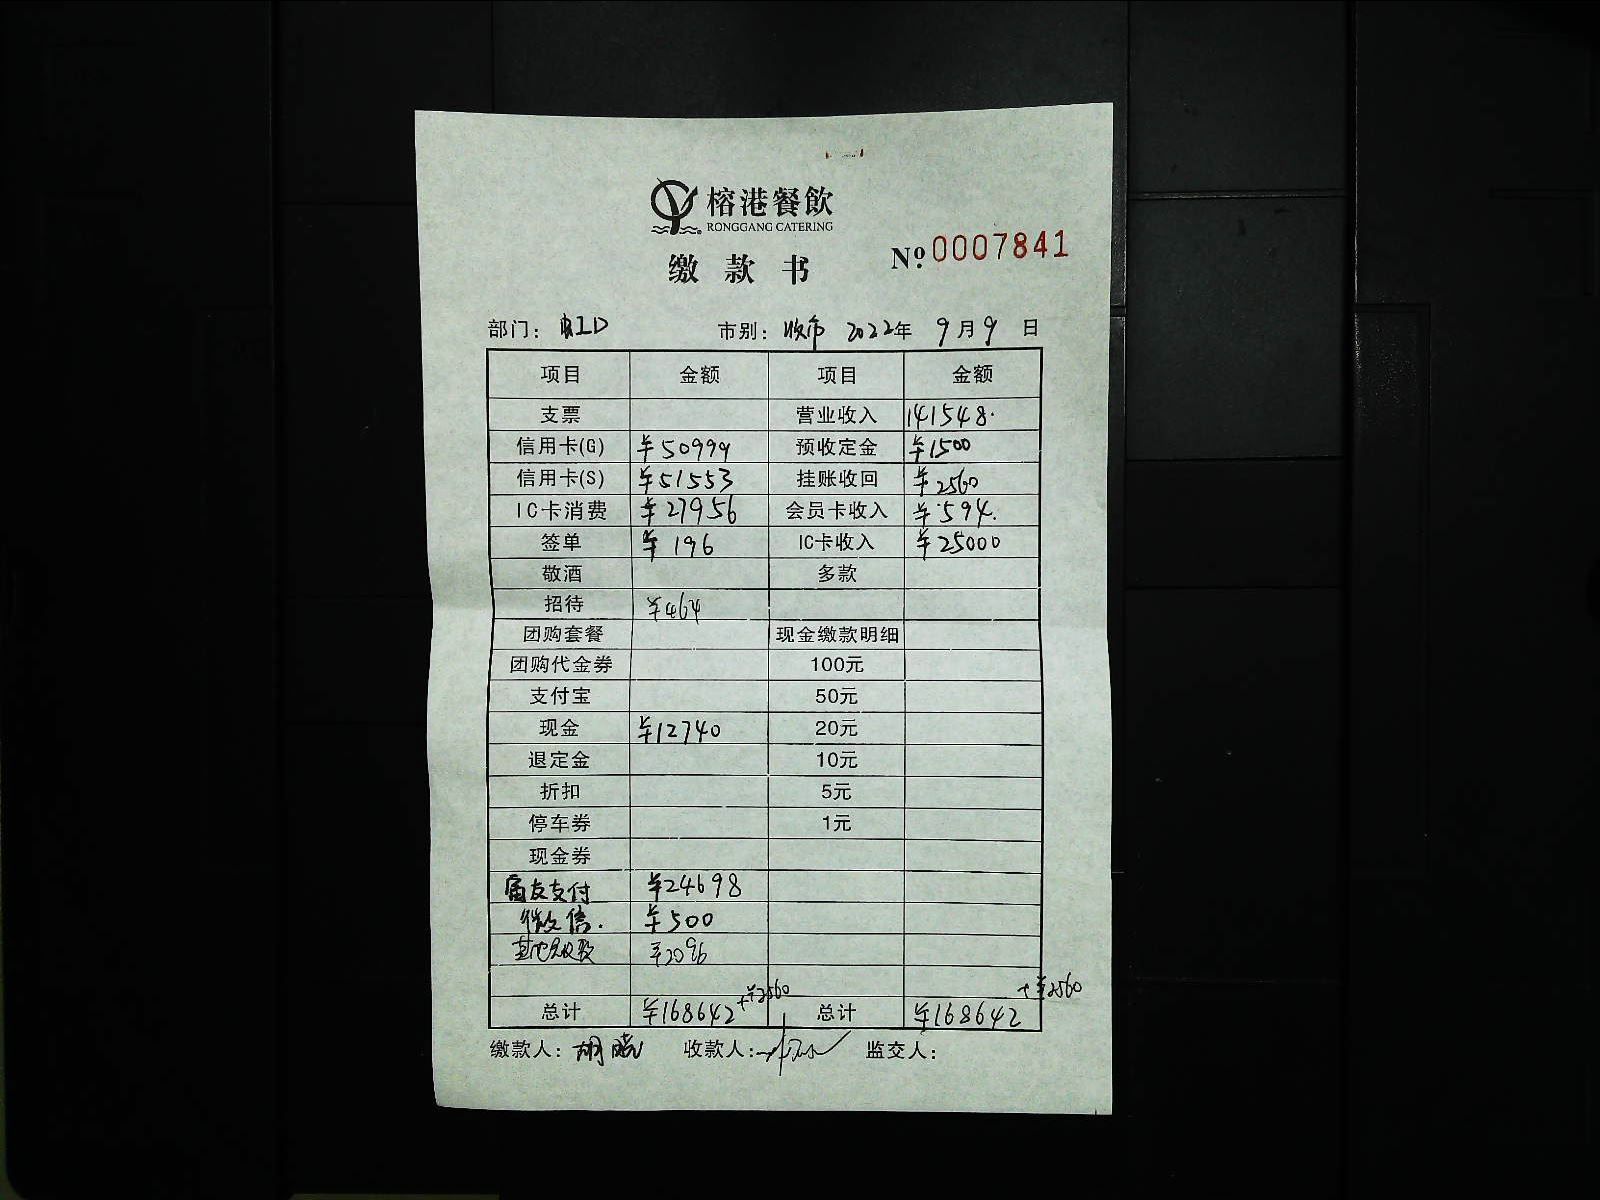 榕港餐飲
RONGGANG CATERING
缴款书 № 0007841
部门： 市别：收市 2022年 9月9日
项目 金额 项目 金额
支票 营业收入 141548.
信用卡(G) ¥50999 预收定金 ¥1500
信用卡(S) ¥51553 挂账收回 ¥2560
IC卡消费 ¥27956 会员卡收入 ¥594.
签单 ¥196 IC卡收入 ¥25000
敬酒 多款
招待 ¥464
团购套餐 现金缴款明细
团购代金券 100元
支付宝 50元
现金 ¥12740 20元
退定金 10元
折扣 5元
停车券 1元
现金券
富友支付 ¥24698
微信. ¥500
¥2096
+¥2560 +¥2560
总计 ¥168642 总计 ¥168642
缴款人：胡晓 收款人： 监交人：